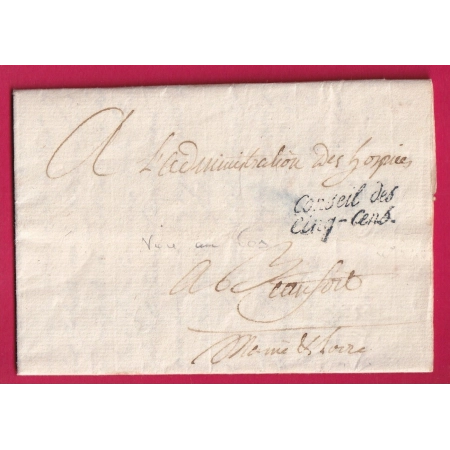 A L'administration des hospices
Conseil des
Cinq-Cens.
A Beaufort
Maine & Loire